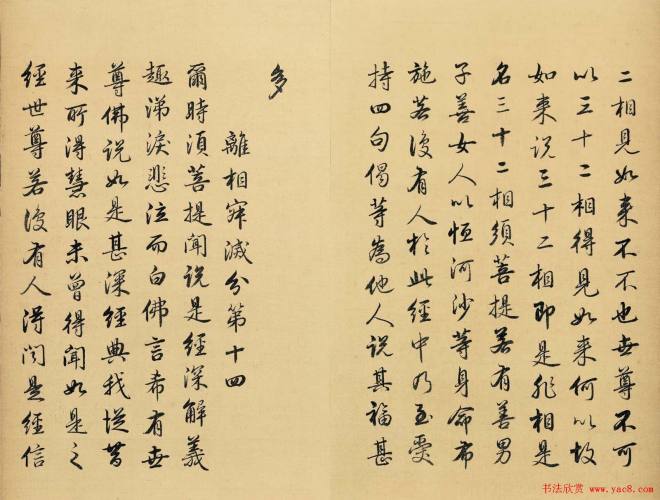 二相見如来不不也世尊不可
以三十二相得見如来何以故
如来说三十二相即是非相是
名三十二相須菩提若有善男
子善女人以恒河沙等身命布
施若復有人於此經中乃至受
持四句偈等為他人说其福甚
多
離相寂滅分第十四
爾時須菩提聞说是經深解義
趣涕淚悲泣而白佛言希有世
尊佛说如是甚深經典我從昔
来所得慧眼未曾得聞如是之
經世尊若復有人得闻是經信
书法欣赏 www.yac8.com